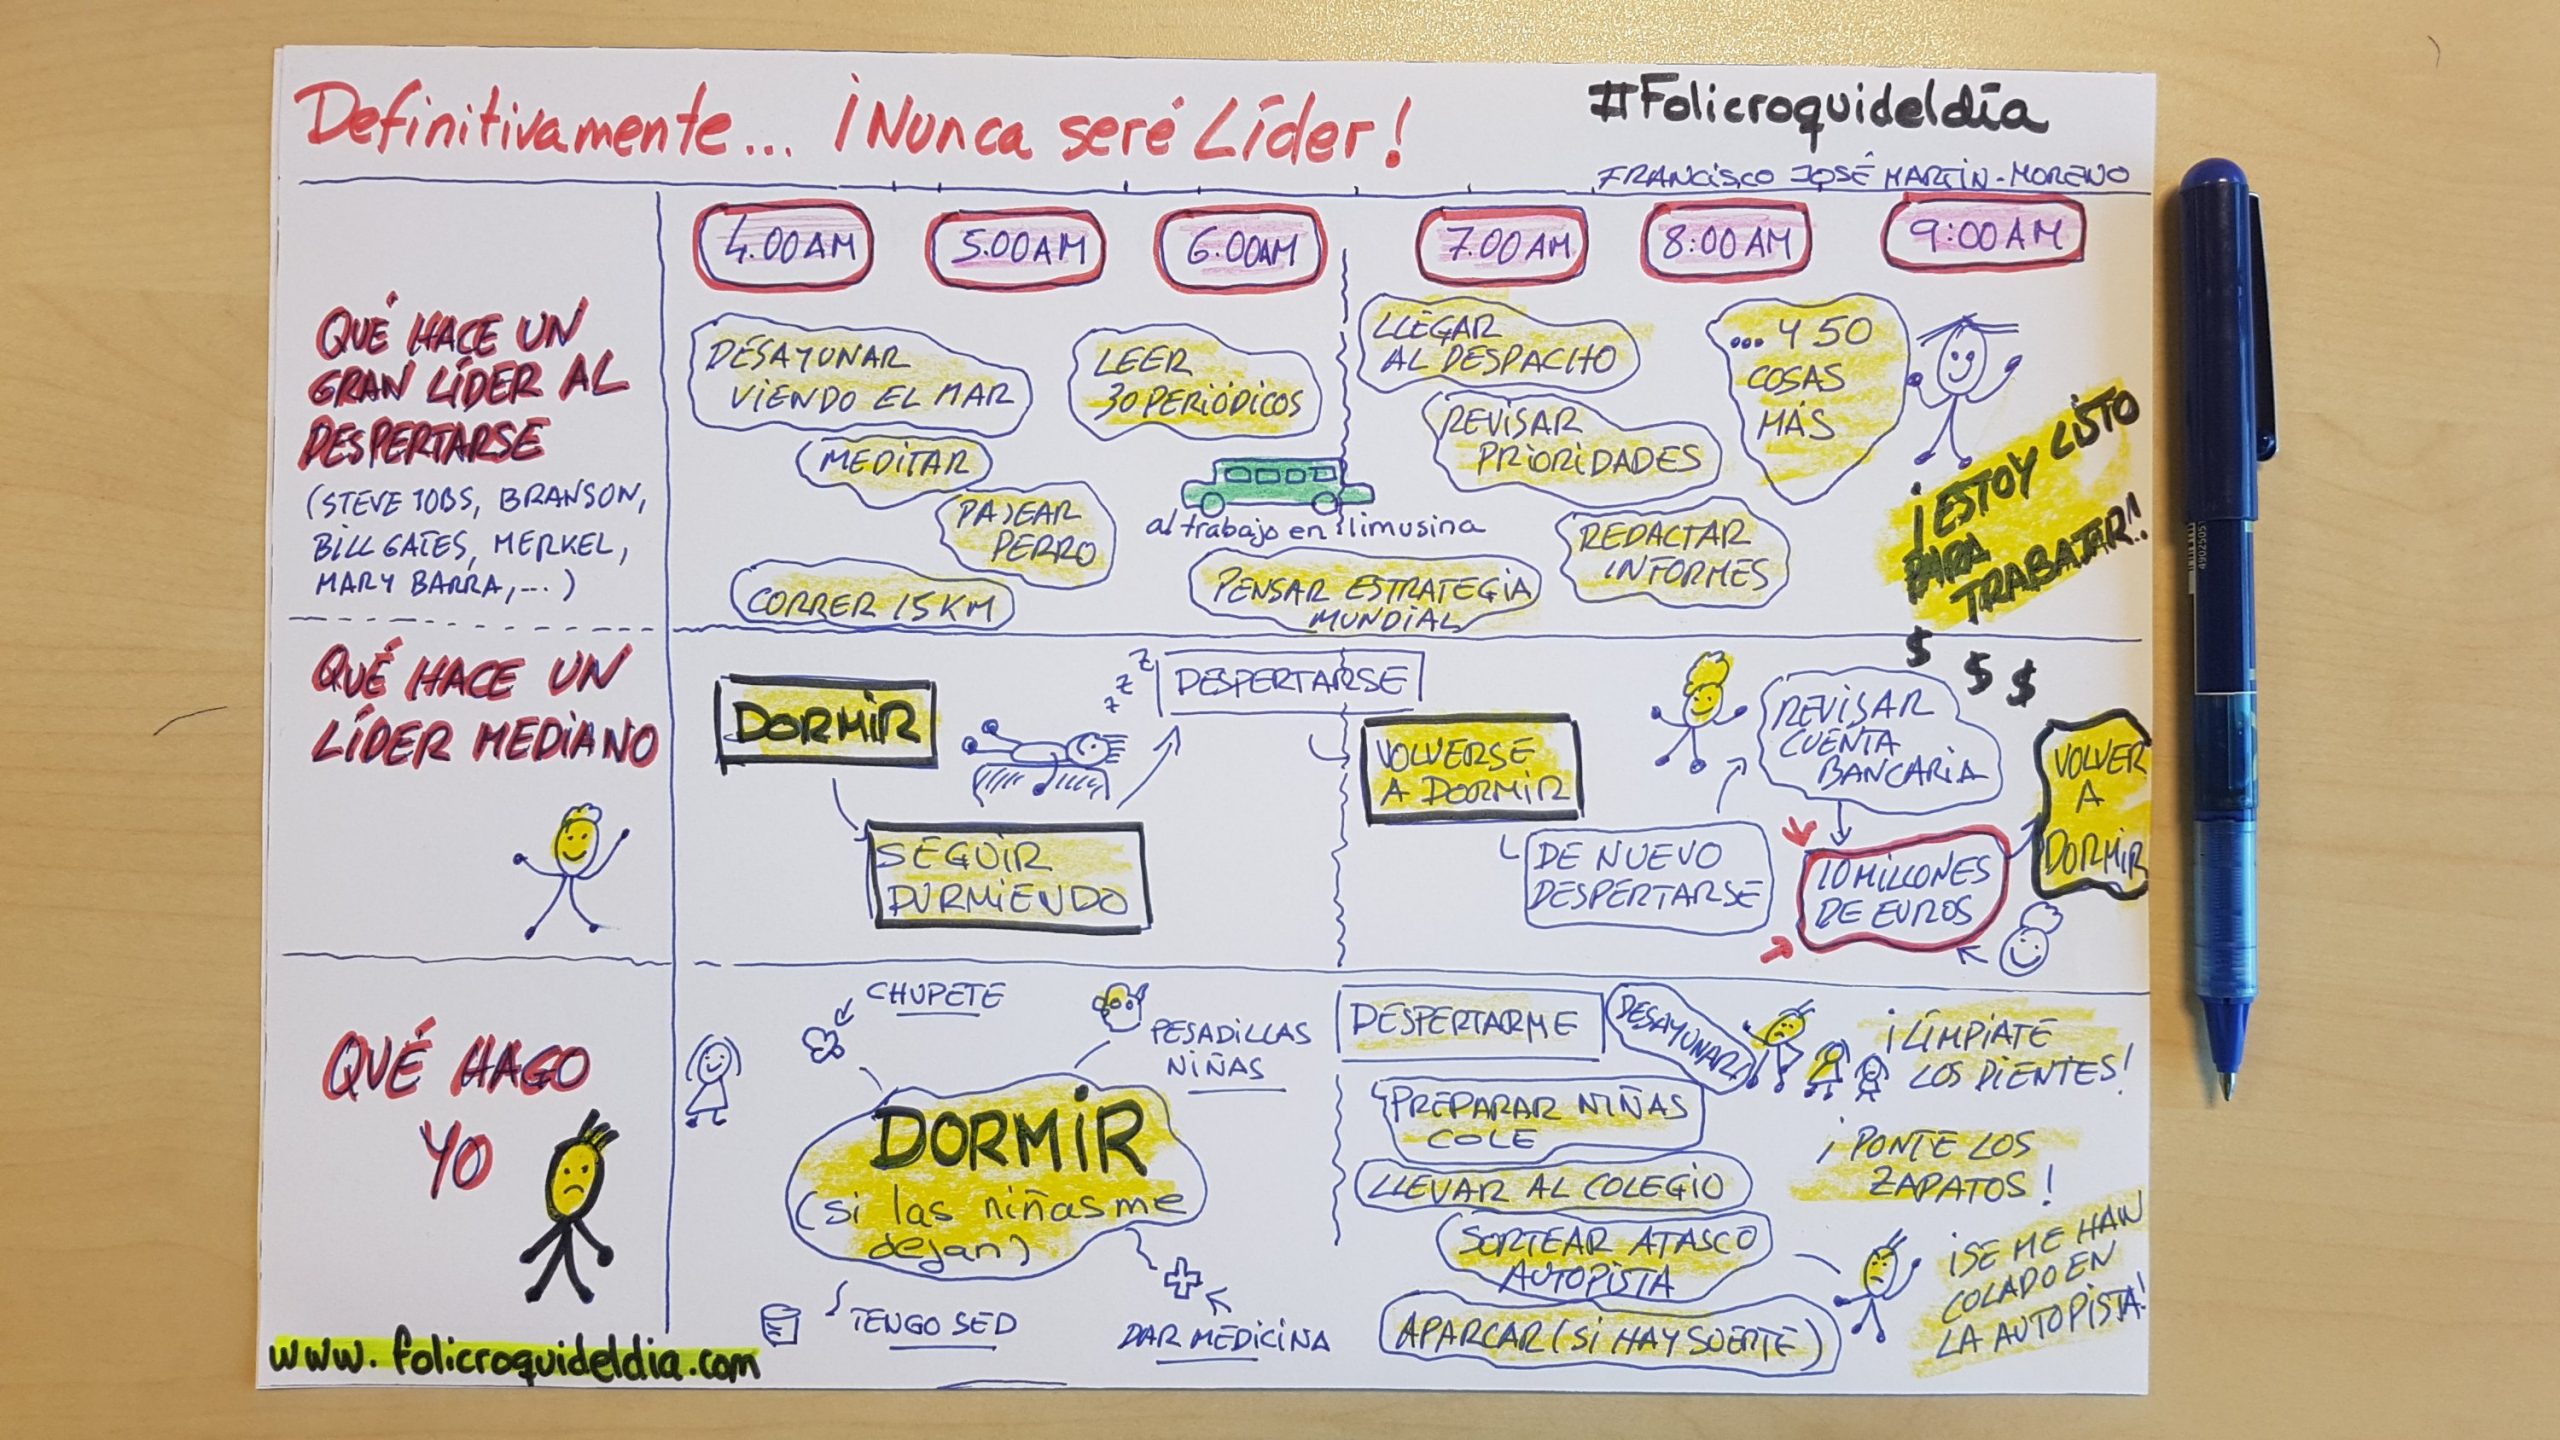 Definitivamente... ¡Nunca seré Líder!
#Folicroquideldía
FRANCISCO JOSÉ MARTÍN-MORENO
4.00AM
5.00AM
6.00AM
7.00AM
8:00AM
9:00AM
QUÉ HACE UN
GRAN LÍDER AL
DESPERTARSE
(STEVE JOBS, BRANSON,
BILL GATES, MERKEL,
MARY BARRA,...)
DESAYUNAR
VIENDO EL MAR
MEDITAR
PASEAR
PERRO
CORRER 15KM
LEER
30 PERIÓDICOS
al trabajo en limusina
PENSAR ESTRATEGIA
MUNDIAL
LLEGAR
AL DESPACHO
REVISAR
PRIORIDADES
REDACTAR
INFORMES
... Y 50
COSAS
MÁS
¡ESTOY LISTO
PARA
TRABAJAR!!
QUÉ HACE UN
LÍDER MEDIANO
DORMIR
SEGUIR
DURMIENDO
z z z
DESPERTARSE
VOLVERSE
A DORMIR
DE NUEVO
DESPERTARSE
REVISAR
CUENTA
BANCARIA
$ $ $
10 MILLONES
DE EUROS
VOLVER
A
DORMIR
QUÉ HAGO
YO
CHUPETE
PESADILLAS
NIÑAS
DORMIR
(si las niñas me
dejan)
TENGO SED
DAR MEDICINA
DESPERTARME
DESAYUNAR
PREPARAR NIÑAS
COLE
LLEVAR AL COLEGIO
SORTEAR ATASCO
AUTOPISTA
APARCAR (SI HAY SUERTE)
¡LÍMPIATE
LOS DIENTES!
¡PONTE LOS
ZAPATOS!
¡SE ME HAN
COLADO EN
LA AUTOPISTA!
www.folicroquideldia.com
49025051